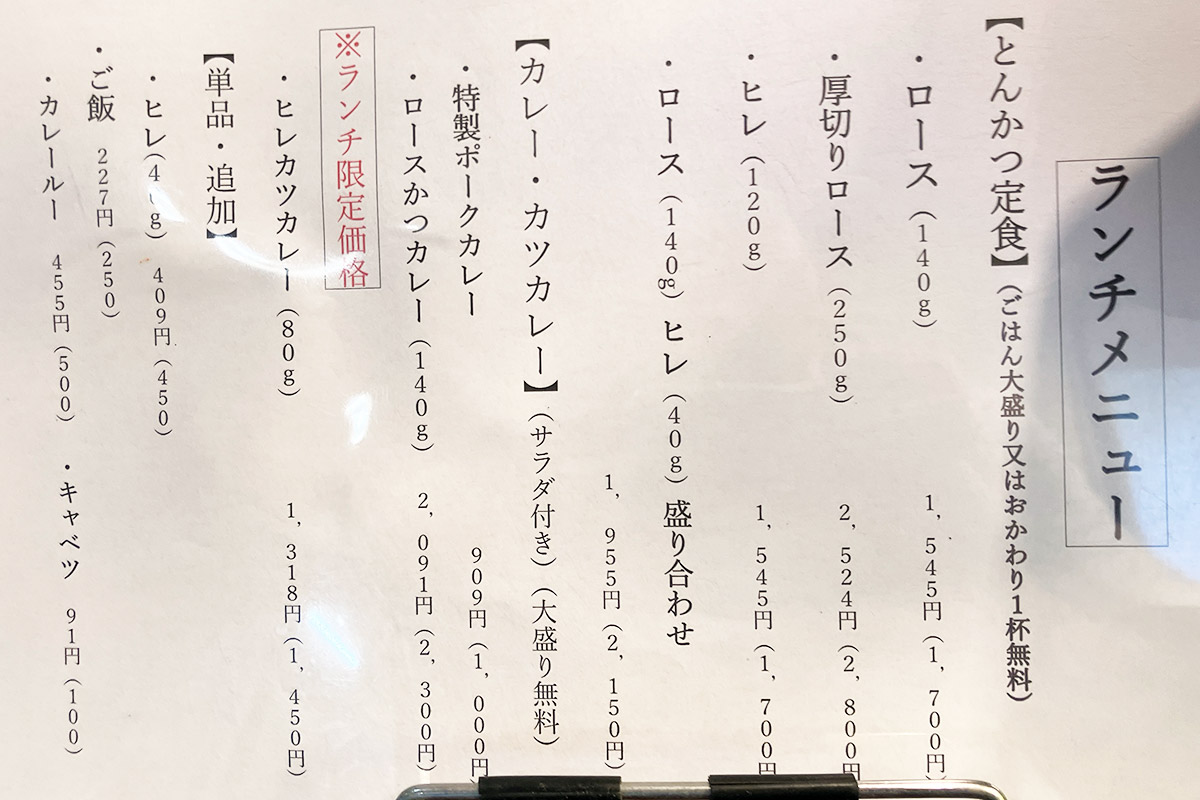 ランチメニュー
【とんかつ定食】(ごはん大盛り又はおかわり1杯無料)
・ロース(140g) 1,545円(1,700円)
・厚切りロース(250g) 2,524円(2,800円
・ヒレ(120g) 1,545円(1,700円
・ロース(140g)ヒレ(40g)盛り合わせ
1,955円(2,150円)
【カレー・カツカレー】(サラダ付き)(大盛り無料)
・特製ポークカレー 909円(1,000円
・ロースかつカレー(140g) 2,091円(2,300円)
※ランチ限定価格
・ヒレカツカレー(80g) 1,318円(1,450円)
【単品・追加】
・ヒレ(4 g) 409円(450)
・ご飯 227円(250)
・カレールー 455円(500) ・キャベツ 91円(100)